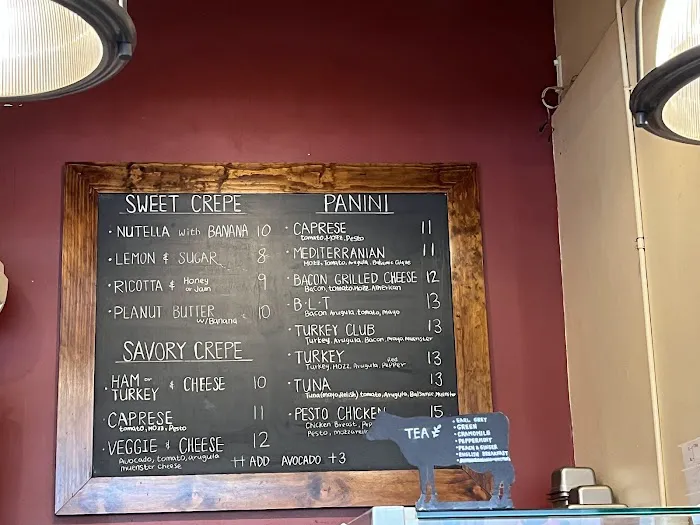 SWEET CREPE
• NUTELLA with BANANA 10
• LEMON & SUGAR 8
• RICOTTA & Honey or Jam 9
• PLANUT BUTTER w/Banana 10
SAVORY CREPE
• HAM or TURKEY & CHEESE 10
CAPRESE 11
tomato, Mozz, Pesto
VEGGIE & CHEESE 12
Avocado, tomato, arugula
muenster cheese
++ ADD AVOCADO +3
PANINI
• CAPRESE 11
tomato, Mozz, Pesto
MEDITERRANIAN 11
Mozz, Tomato, Arugula, Balsamic
• BACON GRILLED CHEESE 12
Bacon, tomato, Mozz, American
• B·L·T 13
Bacon, Arugula, tomato, Mayo
• TURKEY CLUB 13
Turkey, Arugula, Bacon, Mayo, Muenster
• TURKEY 13
Turkey, Mozz, Arugula, Red Pepper
• TUNA 13
Tuna (mayo, Relish) tomato, Arugula, Balsamic, Muenster
• PESTO CHICKEN 15
Chicken Breast,
Pesto, mozzarella
TEA
• EARL GREY
• GREEN
• CHAMOMILE
• PEPPERMINT
• PEACH & GINGER
• ENGLISH BREAKFAST